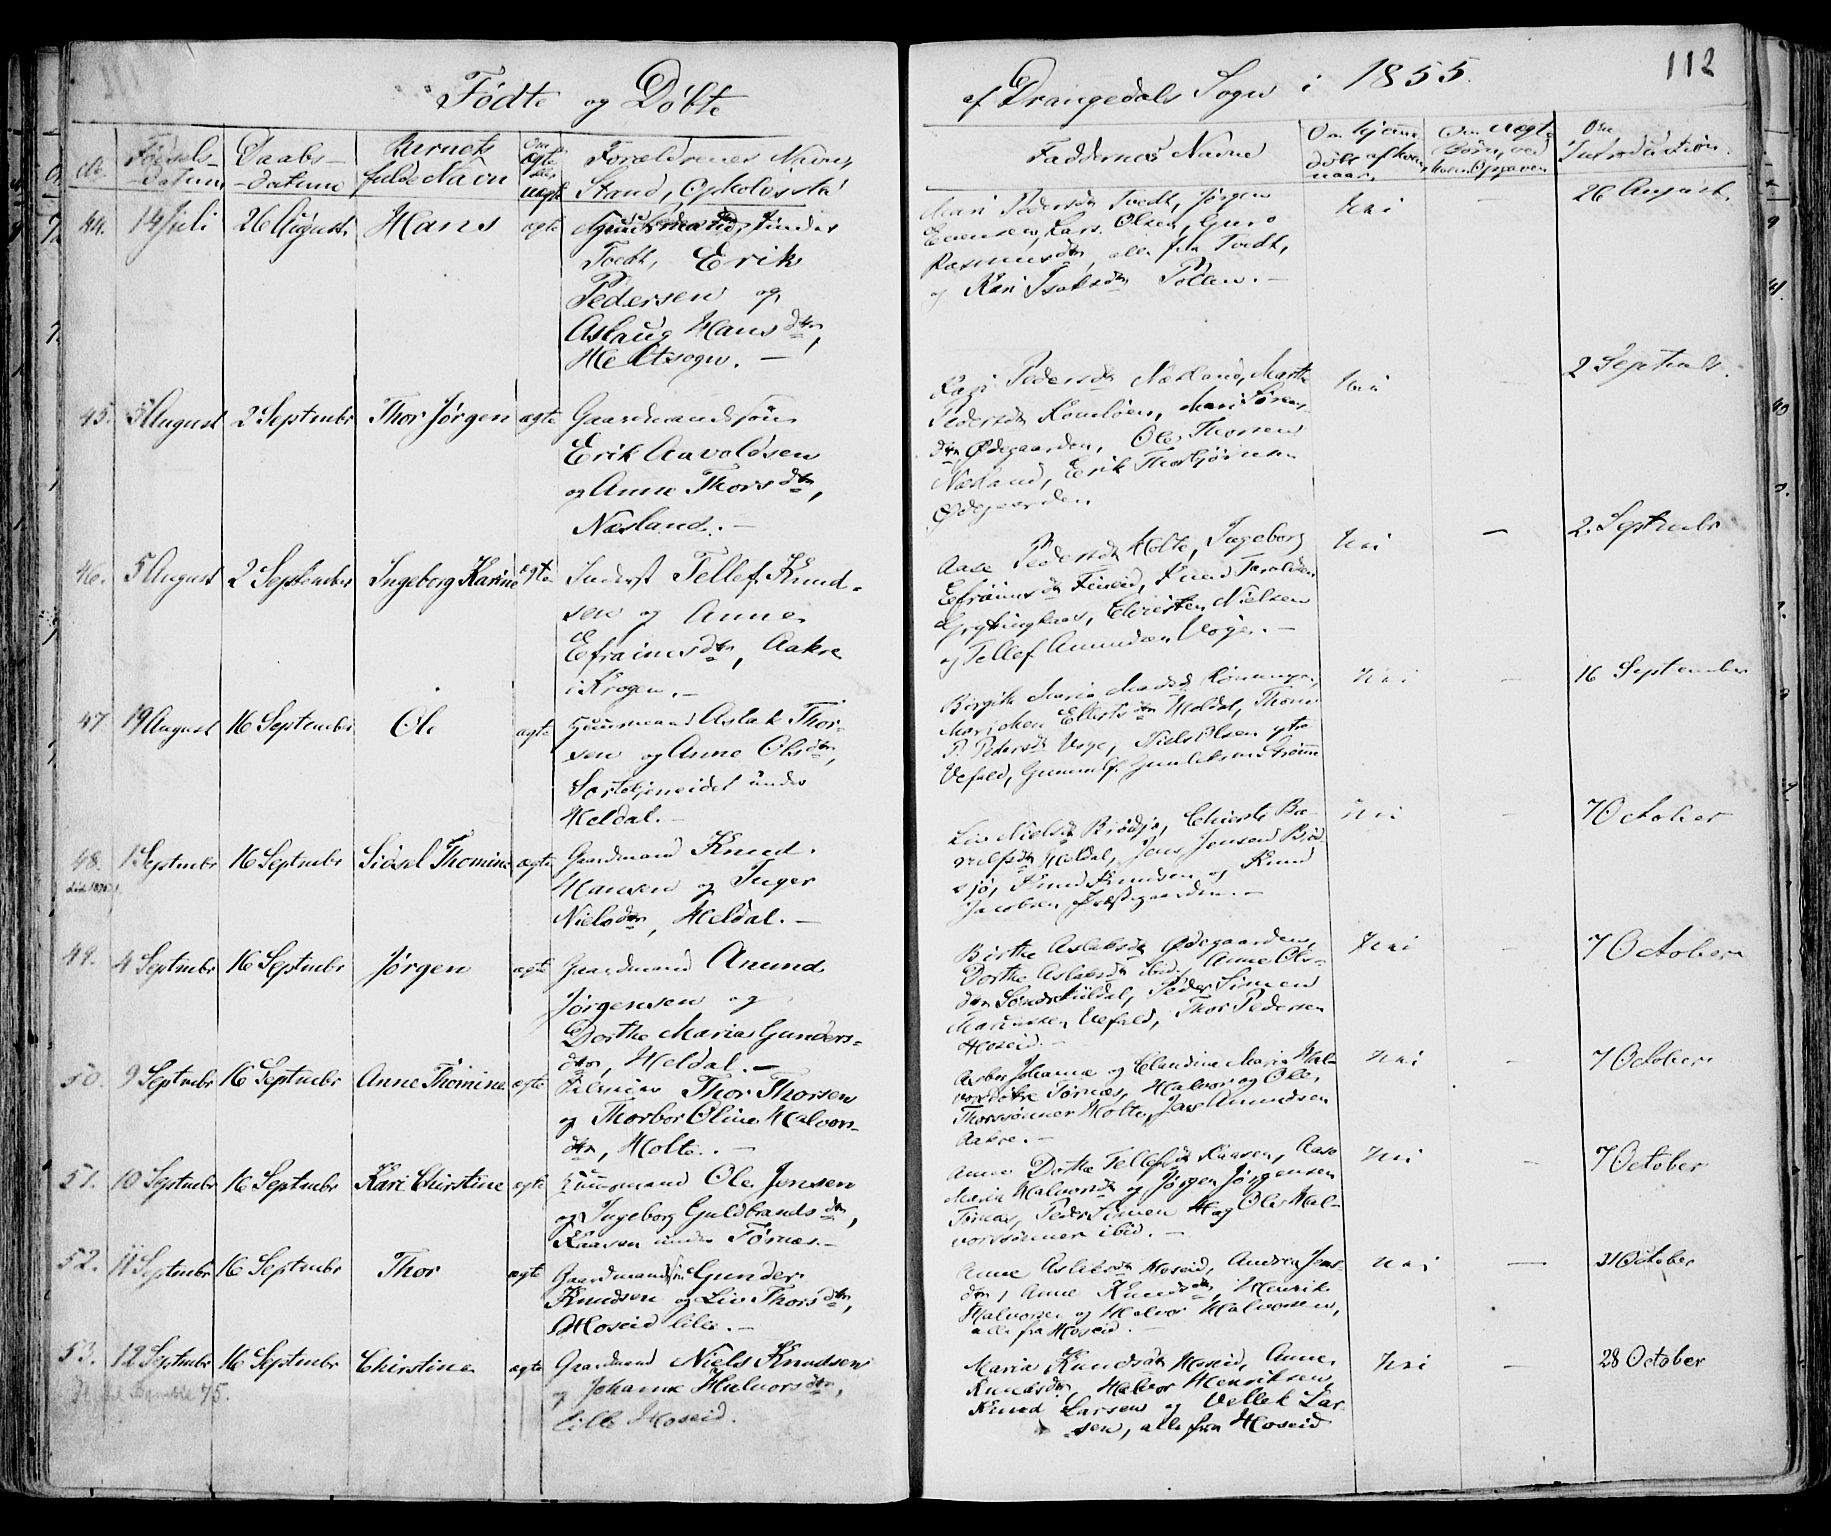 Fødte og Døbte
af Drangedals Sogn i 1855.
112
No.
Fødsels-
datum
Daabs-
datum
Barnets
fulde Navn
Om
ægte
eller
uægte
Forældrenes Navn,
Stand, Opholdssted
Faddernes Navne
Om hjemme
døbt af hvem
naar
Om uægte
Børn, ved
Om
Introduction
44. 14 Juli 26 August Hans ægte under
Tvedt, Erik
Pedersen og
Aslaug Hansdtr,
Heltsogn. —
Mari Pedersdtr Tvedt, Jørgen
Evensen, Lars Olsen, Guro
Rasmusdtr, alle fra Tvedt,
og Kari Isaksdtr —
Nei — 26 August.
45. 5 August 2 Septembr Thor Jørgen ægte Gaardmandssøn
Erik Aavoldsen
og Anne Thorsdtr,
Næsland. —
Pedersdtr Næsland, Marthe
Pedersdtr Mari Søren-
dtr Ødegaarden, Ole Thorsen
Næsland, Erik Thorbjørnsen
Ødegaarden.
Nei — 2 Septembr.
46. 5 August 2 September Ingeborg Karine ægte Inderst Tellef Knud-
sen og Anne
Efraimsdtr, Aakre
i Krogen. —
Aase Pedersdtr Holte, Ingeborg
Efraimsdtr Knud Taraldsen
Christen Nielsen
og Tellef Amundsen Voje. —
Nei — 2. Septembr
47 19 August 16 September Ole ægte Huusmand Aslak Thor-
sen og Anne Olsdtr,
under
Heldal. —
Birgith Maria
Marichen Ellefsdtr Heldal, Thone
P. Pedersdtr Voje, Niels Olsen ytre
Vefald, Gunnulf Gunleksen
Nei — 16 September
48. 1 Septembr 16 Septembr Sidsel Thomine ægte Gaardmand Knud
Hansen og Inger
Nielsdtr, Heldal. —
Liv Nielsdtr Brødsjø,
Heldal, Jens Jensen Brød-
sjø, Knud Knudsen og Knud
Jacobsen Præstegaarden. —
Nei — 7 October
49. 4 Septembr 16 Septembr Jørgen ægte Gaardmand Anund
Jørgensen og
Dorthe Maria Gunders-
dtr, Heldal. —
Birthe Aslaksdtr Ødegaarden,
Dorthe Aslaksdtr ibid, Anne Ols-
dtr Peder Simen
Vefald, Thor Pedersen
Hoseid. —
Nei — 7 October
50. 9 Septembr 16 Septembr Anne Thomine ægte Thor Thorsen
og Thorbor Oline Halvors-
dtr, Holte. —
Asber Johanne og Claudine Maria Hal-
vorsdøtre Tørnæs, Halvor og Ole
Thorssønner Holte, Jens Amundsen
Aakre. —
Nei — 7 October
51. 10 Septembr 16 Septembr Kari Christine ægte Huusmand Ole Jensen
og Ingeborg Guldbrandsdtr,
Kaasen under Tørnæs. —
Anne Dorthe Tellefsdtr Kaasen, Aase
Maria Halvorsdtr og Jørgen Jørgensen
Tørnæs, Peder Simen H og Ole Hal-
vorssønner ibid. —
Nei — 7 October
52. 11 Septembr 16 Septembr Thor ægte Gaardmandssøn Gunder
Knudsen og Liv Thorsdtr,
Hoseid lille. —
Anne Aslaksdtr Hoseid, Andrea Jens-
dtr, Anne Knudsdtr, Henrik
Halvorsen og Halvor Halvorsen,
alle fra Hoseid. —
Nei — 21 October
53. 12 Septembr 16 Septembr Christine ægte Gaardmand Niels Knudsen
og Johanne Halvorsdtr,
Lille Hoseid.
Maria Knudsdtr Hoseid, Anne
Knudsdtr, Halvor Henriksen,
Knud Larsen og Vellek Lar-
sen, alle fra Hoseid
Nei — 28 October